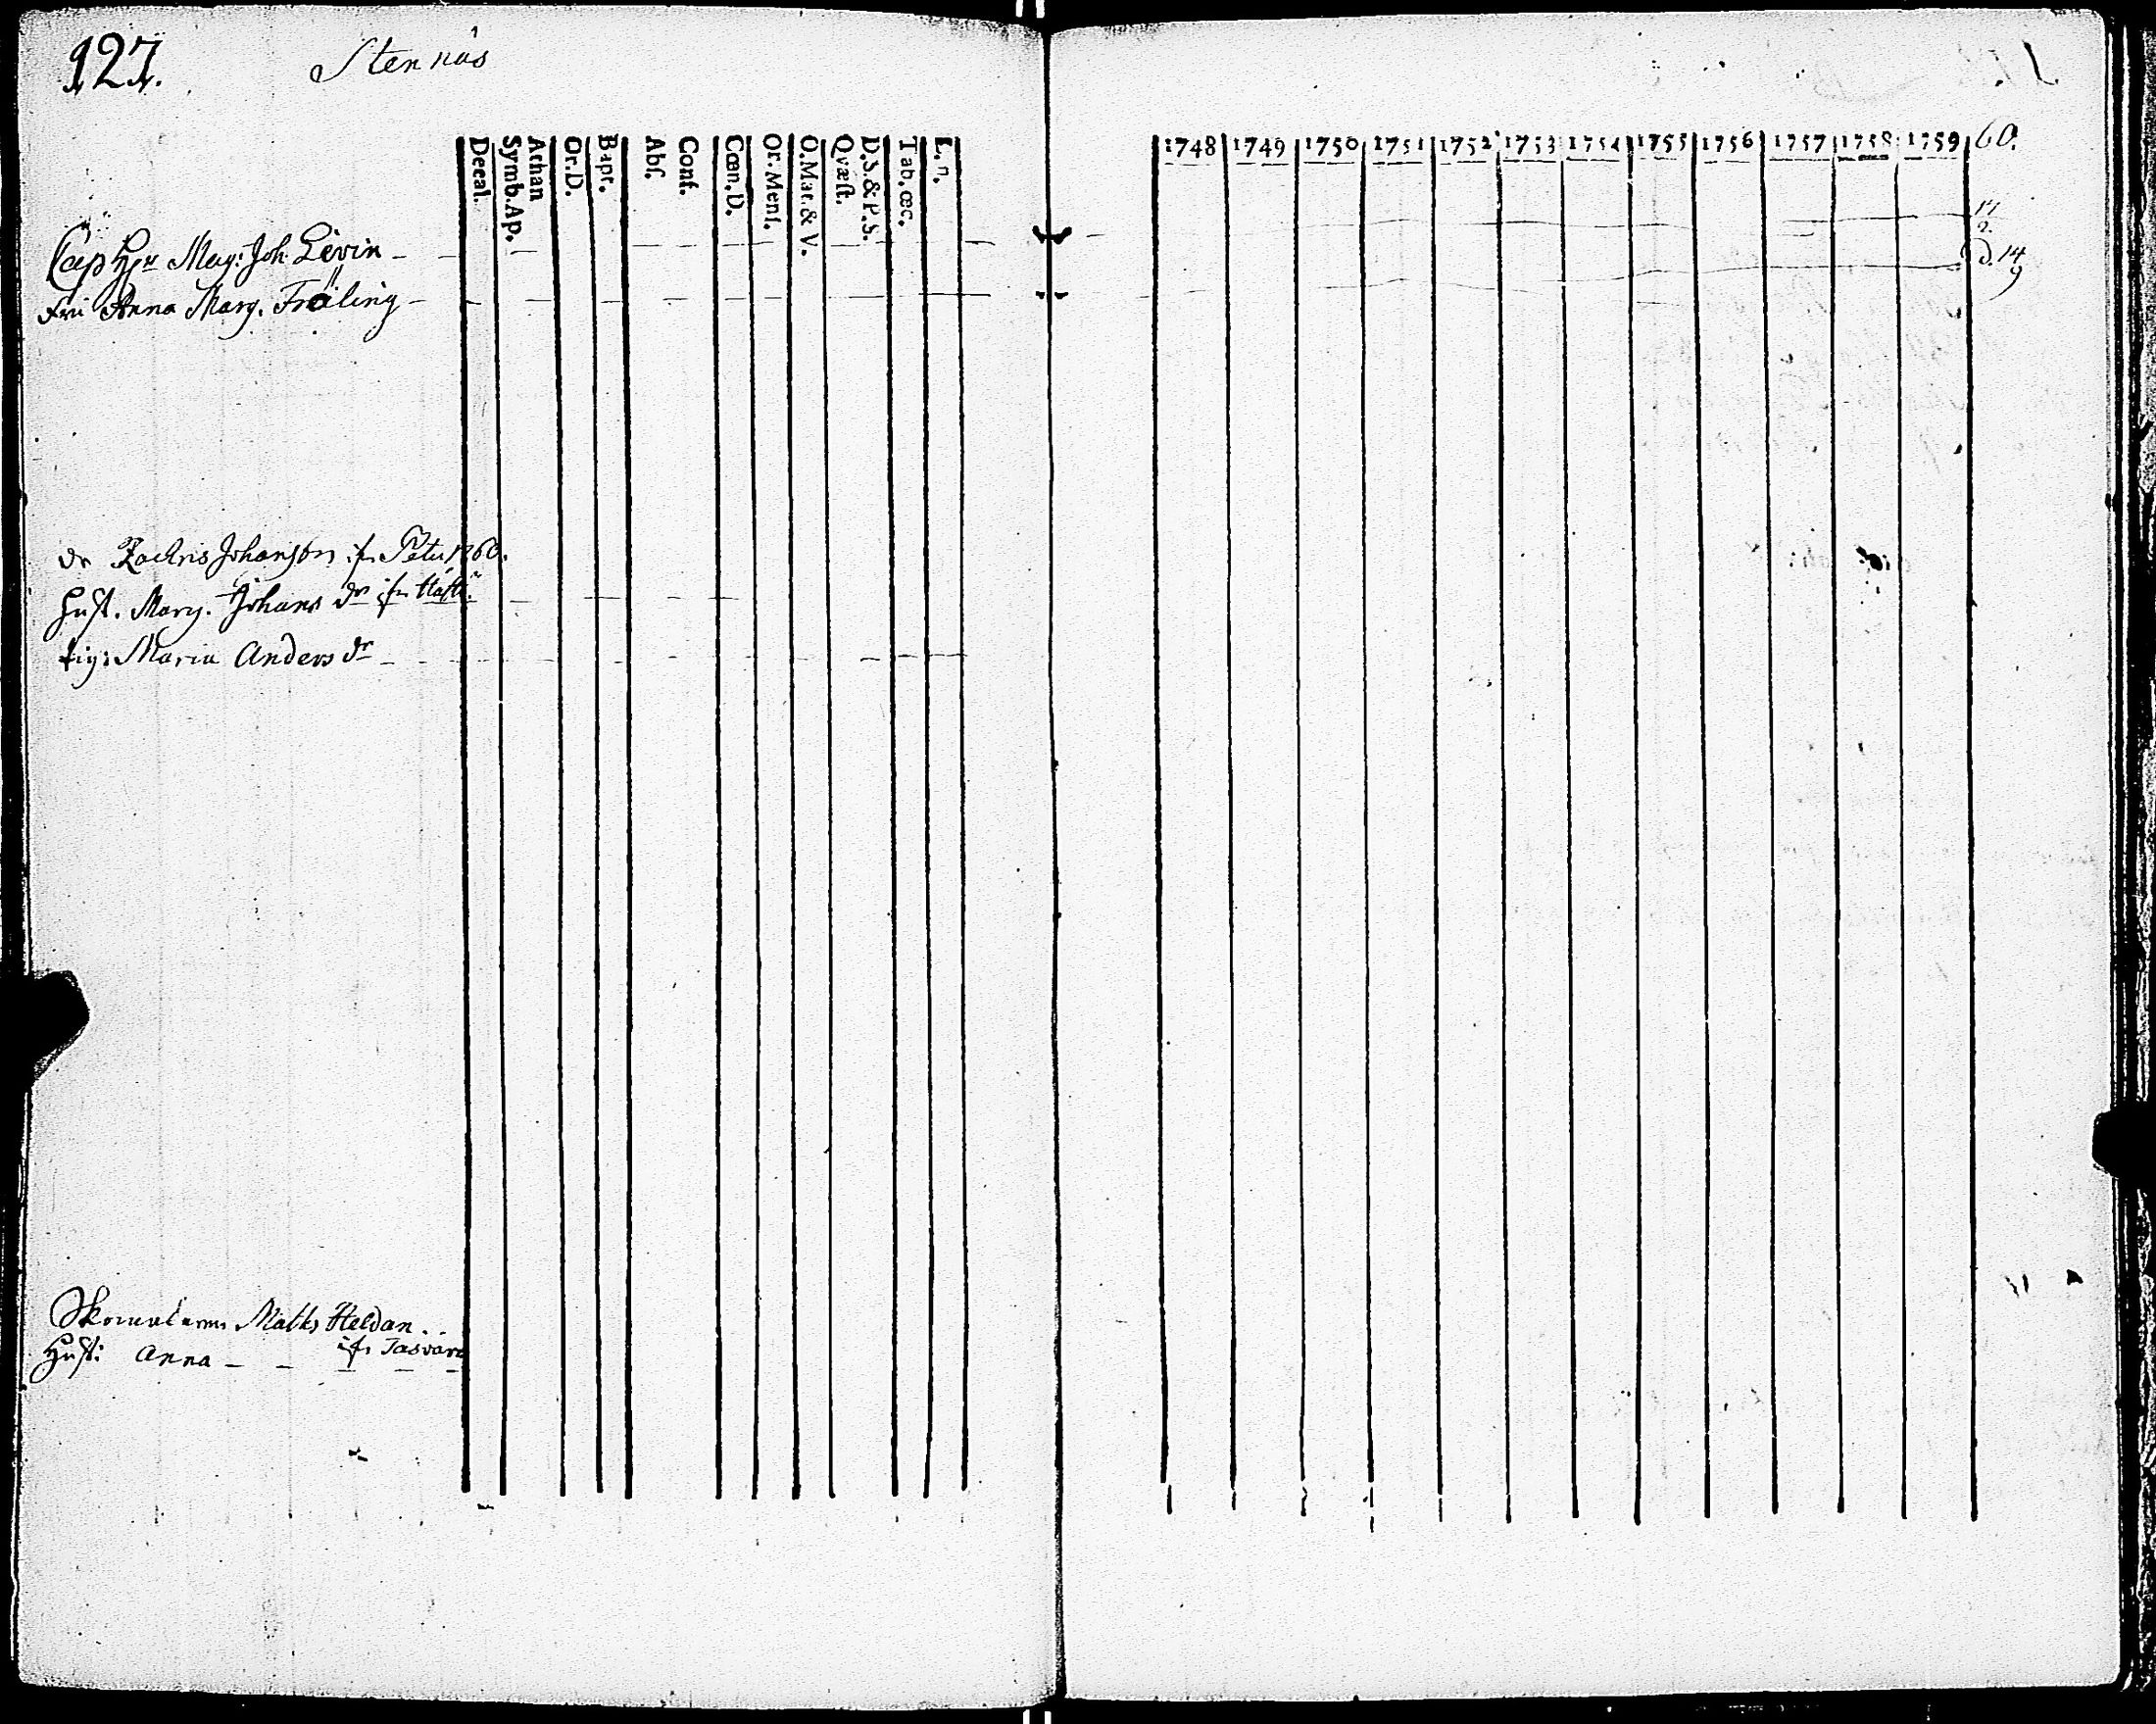 127. Stennäs
Decal.
Symb. Ap.
Athan
Or. D.
Bapt.
Abſ.
Conf.
Cœn. D.
Or. Menſ.
O. Mat. & V.
Qvæſt.
D. S. & P. S.
Tab. œc.
L. n.
1748 1749 1750 1751 1752 1753 1754 1755 1756 1757 1758 1759 60.
Cap Mag: Joh. Levin
Fru Anna Marg. Fröling
d. 14
9
dr Zachris Johansson ifr. 1760.
Hust. Marg. Johans dr ifr.
Pig: Maria Anders dr
Matts Heldan.
Hust: Anna ifr.